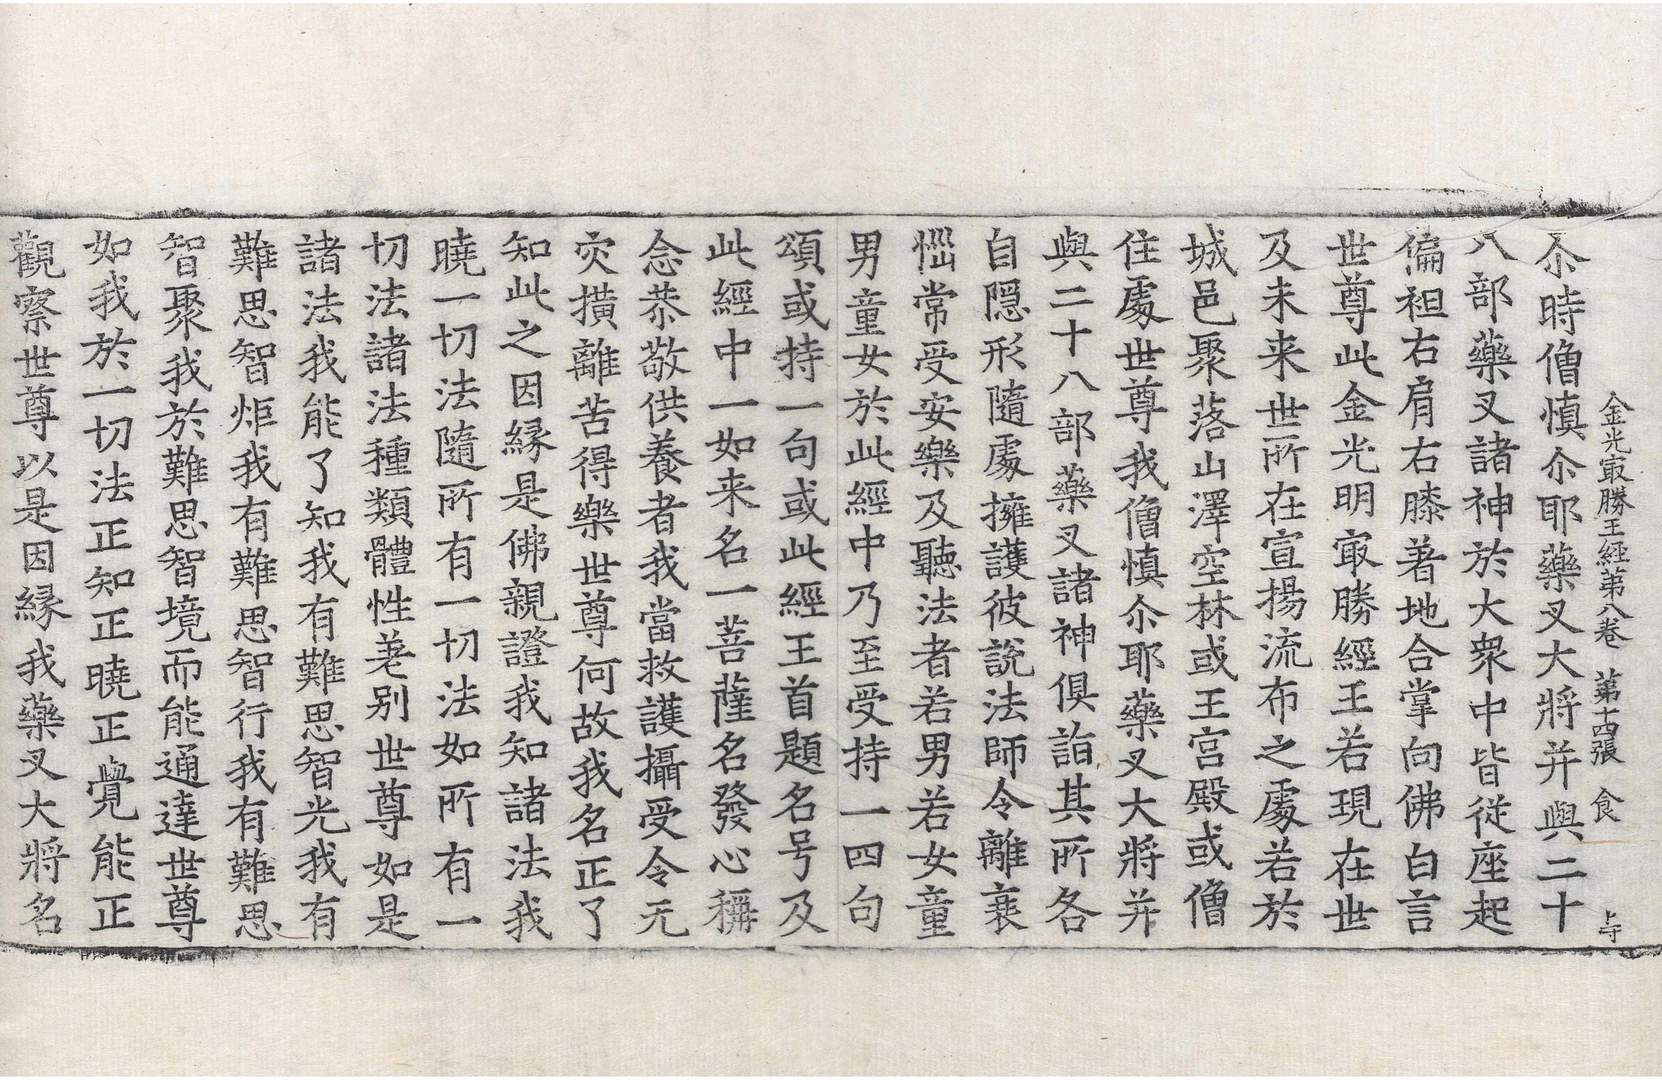 金光㝡勝王經第八卷 第十四張 食
尒時僧慎尒耶藥叉大將并與二十
八部藥叉諸神於大衆中皆從座起
偏袒右肩右膝著地合掌向佛白言
世尊此金光明㝡勝經王若現在世
及未来世所在宣揚流布之處若於
城邑聚落山澤空林或王宮殿或僧
住處世尊我僧慎尒耶藥叉大將并
與二十八部藥叉諸神俱詣其所各
自隱形隨處擁護彼說法師令離衰
惱常受安樂及聽法者若男若女童
男童女於此經中乃至受持一四句
頌或持一句或此經王首題名号及
此經中一如来名一菩薩名發心稱
念恭敬供養者我當救護攝受令无
灾撗離苦得樂世尊何故我名正了
知此之因緣是佛親證我知諸法我
曉一切法隨所有一切法如所有一
切法諸法種類體性差别世尊如是
諸法我能了知我有難思智光我有
難思智炬我有難思智行我有難思
智聚我於難思智境而能通達世尊
如我於一切法正知正曉正覺能正
觀察世尊以是因緣我藥叉大將名